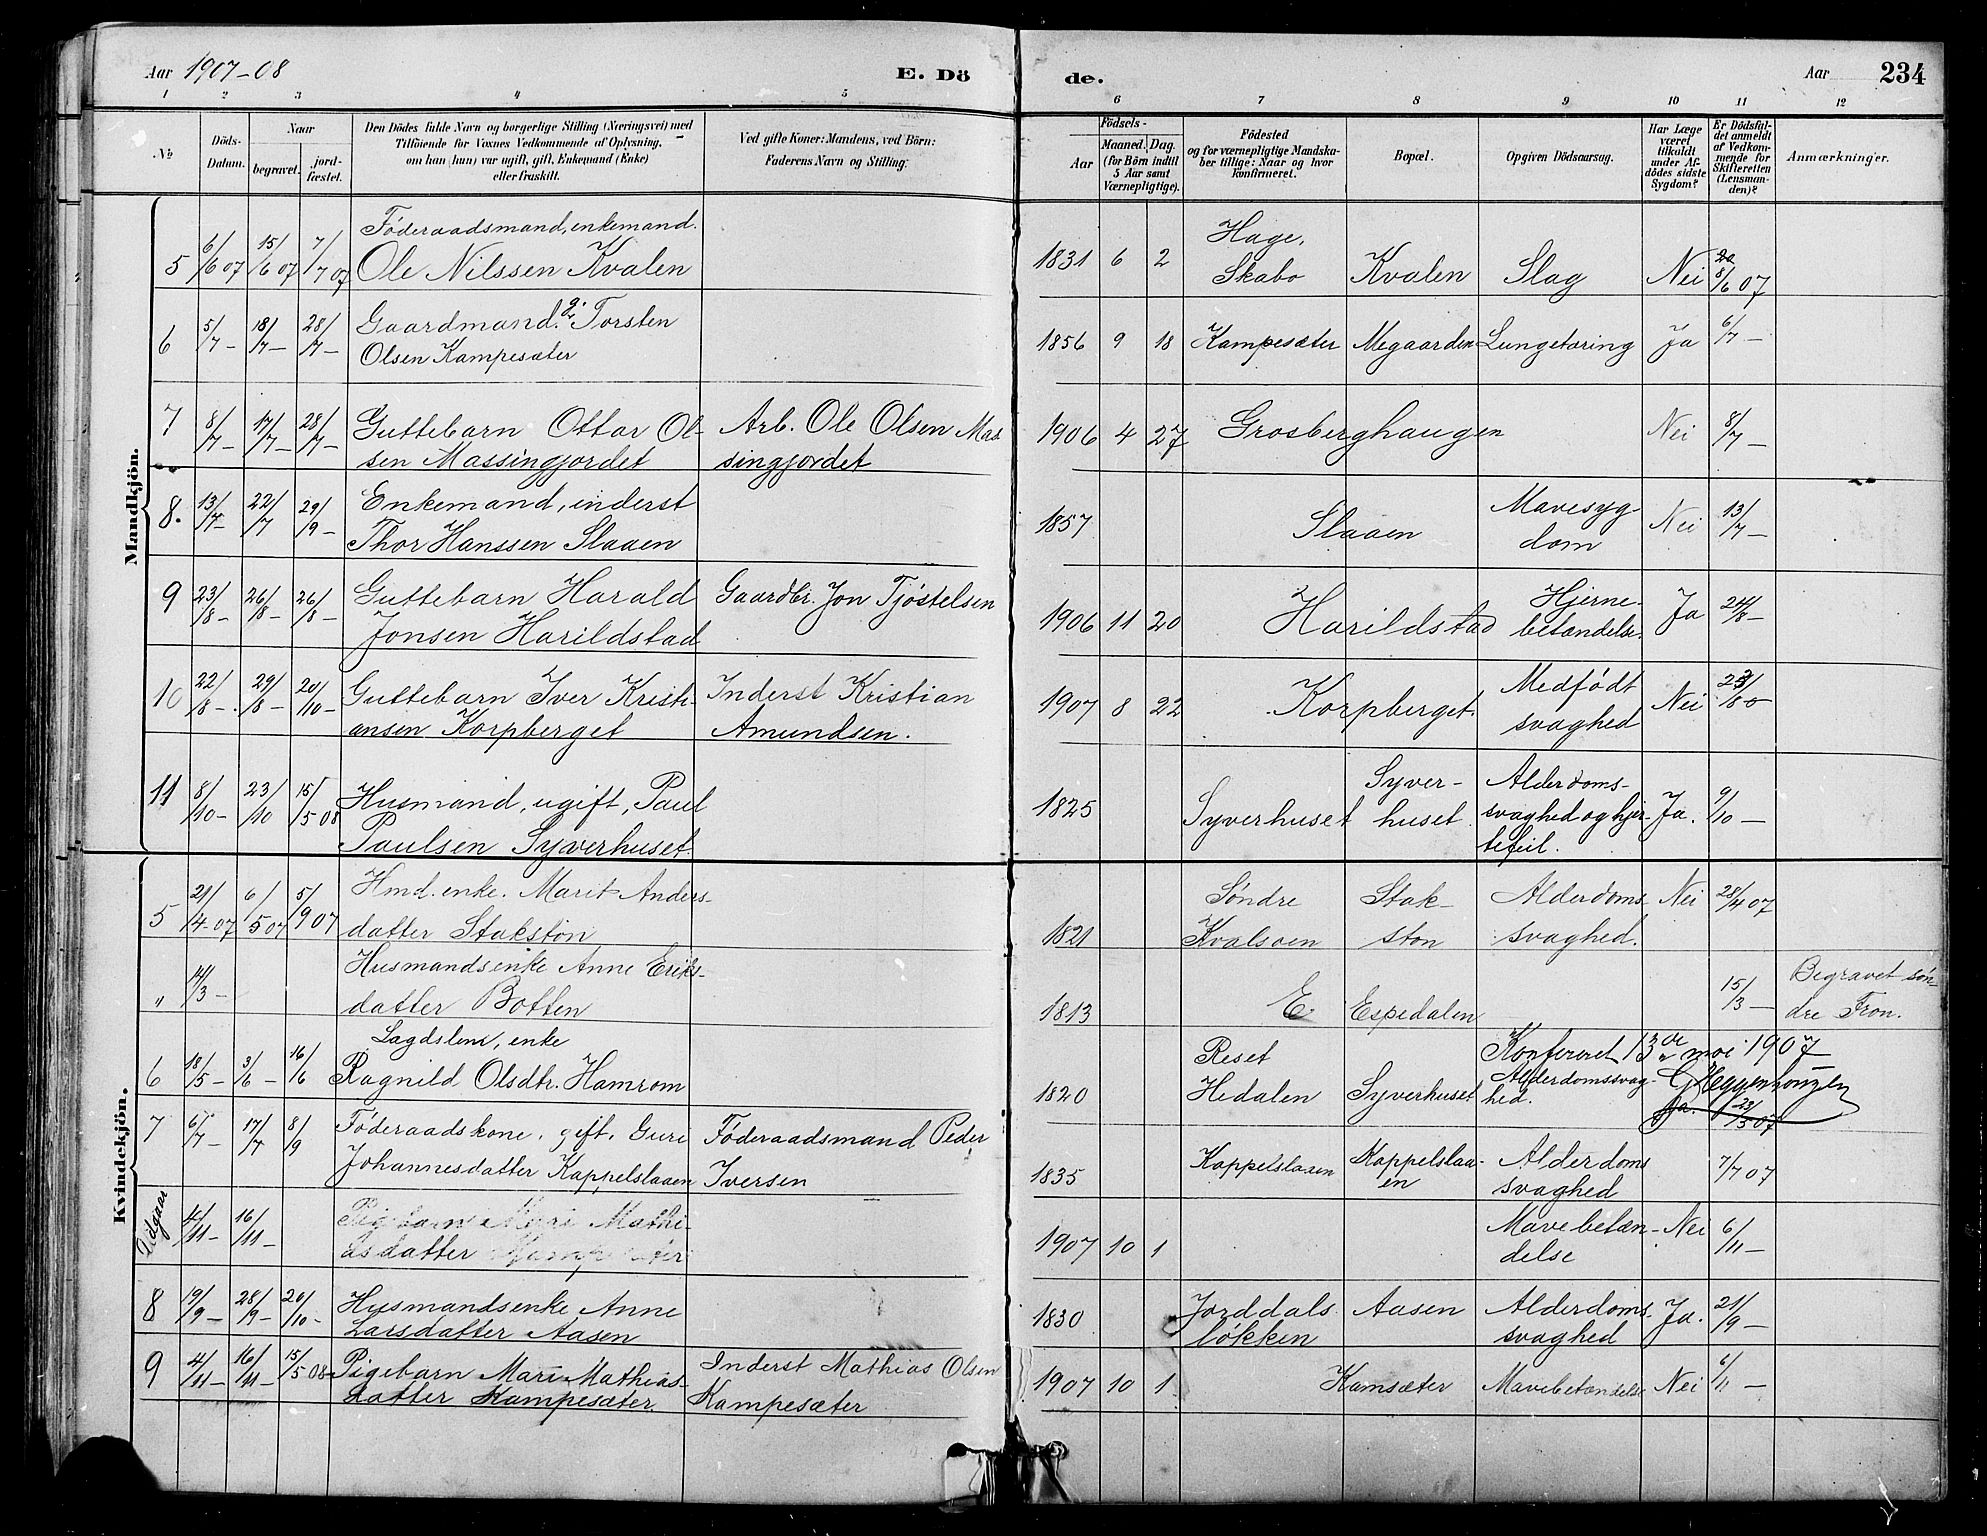 Aar 1907-08
E. Dö
de.
Aar
234
1 2 3 4 5 6 7 8 9 10 11 12
No
Döds-
Datum.
Naar
begravet.
jord-
fæstet.
Den Dödes fulde Navn og borgerlige Stilling (Næringsvei) med
Tilföiende for Voxnes Vedkommende af Oplysning,
om han (hun) var ugift, gift, Enkemand (Enke)
eller fraskilt.
Ved gifte Koner: Mandens, ved Börn:
Faderens Navn og Stilling.
Födsels-
Aar
Maaned. Dag.
(for Börn indtil
5 Aar samt
Værnepligtige).
Födested
og for værnepligtige Mandska-
ber tillige: Naar og hvor
konfirmeret.
Bopæl.
Opgiven Dödsaarsag.
Har Læge
været
tilkaldt
under Af-
dödes sidste
Sygdom?
Er Dödsfal-
det anmeldt
af Vedkom-
mende for
Skifteretten
(Lensman-
den)?
Anmærkninger.
Mandkjön.
5 6/6 07 15/6 07 7/7 07 Föderaadsmand, enkemand.
Ole Nilssen Kvalen
1831 6 2 Hage,
Skabo Kvalen Slag Nei 8/6 07
6 5/7 - 18/7 - 28/7 - Gaardmand. g. Torsten
Olsen Kampesæter
1856 9 18 Kampesæter Megaarden Lungetæring Ja 6/7 -
7 8/7 - 17/7 - 28/7 - Guttebarn Ottar Ol-
sen Massingjordet
Arb. Ole Olsen Mas-
singjordet
1906 4 27 Grosberghaugen Nei 8/7 -
8. 13/7 - 22/7 29/9 - Enkemand, inderst
Thor Hanssen Slaaen
1857 Slaaen Mavesyg-
dom Nei 13/7 -
9 23/8 - 26/8 - 26/8 - Guttebarn Harald
Jonsen Harildstad
Gaardbr. Jon Tjöstelsen
1906 11 20 Harildstad Hjerne-
betændelse. Ja 24/8 -
10 22/8 - 29/8 - 20/10 - Guttebarn Iver Kristi-
ansen Korpberget
Inderst Kristian
Amundsen.
1907 8 22 Korpberget. Medfödt
svaghed Nei 23/8
11 8/10 - 23/10 15/5 08 Husmand, ugift, Paul
Paulsen Syverhuset.
1825 Syverhuset Syver-
huset Alderdoms-
svaghed og hjer-
tefeil. Ja. 9/10 -
Kvindekjön.
5 21/4 07 6/5 07 5/9 07 Hmd. enke. Marit Anders-
datter Stakstön
1821 Söndre
Kvalsøen Stak-
ston Alderdoms
svaghed. Nei 28/4 07
" 14/3 - Husmandsenke Anne Eriks-
datter Botten
1813 E Espedalen 15/3 - Begravet sön-
dre Fron.
6 18/5 - 3/6 - 16/6 enke
Ragnild Olsdtr. Hamrom
1820 Reset
Hedalen Syverhuset Alderdomssvag-
hed. Ja.
Konfereret 13de mai 1907
7 6/7 - 17/7 8/9 Föderaadskone, gift, Guri
Johannesdatter Kappelslaaen
Föderaadsmand Peder
Iversen
1835 Kappelslaaen Kappelslaa-
en Alderdoms
svaghed 7/7 07
Udgaar 4/11 - 16/11 - Pigebarn Mari Mathi-
asdatter Kampesæter
1907 10 1 Mavebetæn-
delse Nei 6/11 -
8 19/9 - 28/9 - 20/10 - Husmandsenke Anne
Larsdatter Aasen
1830 Jorddals-
lökken Aasen Alderdoms
svaghed Ja. 21/9 -
9 4/11 - 16/11 - 15/5 08 Pigebarn Mari Mathias-
datter Kampesæter.
Inderst Mathias Olsen
Kampesæter
1907 10 1 Kamsæter Mavebetændelse Nei 6/11 -